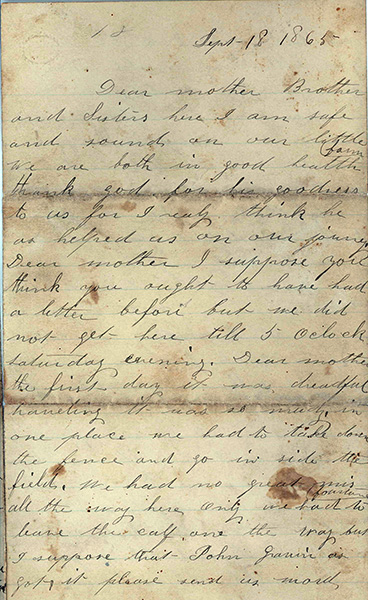 18
Sept - 18 1865
Dear mother Brother
and Sisters here I am safe
and sound on our little
farm
We are both in good health
thank god for his goodness
to us for I realy think he
as helped us on our journey
Dear mother I suppose you
think you ought to have had
a letter before but we did
not get here till 5 Oclock
saturday evening. Dear mother
the first day it was dreadful
traveling it was so mudy in
one place we had to take down
the fence and go in side the
field. We had no great mis
fourtune
all the way here only we had to
leave the calf one the way but
I suppose that John as
got it please send us word